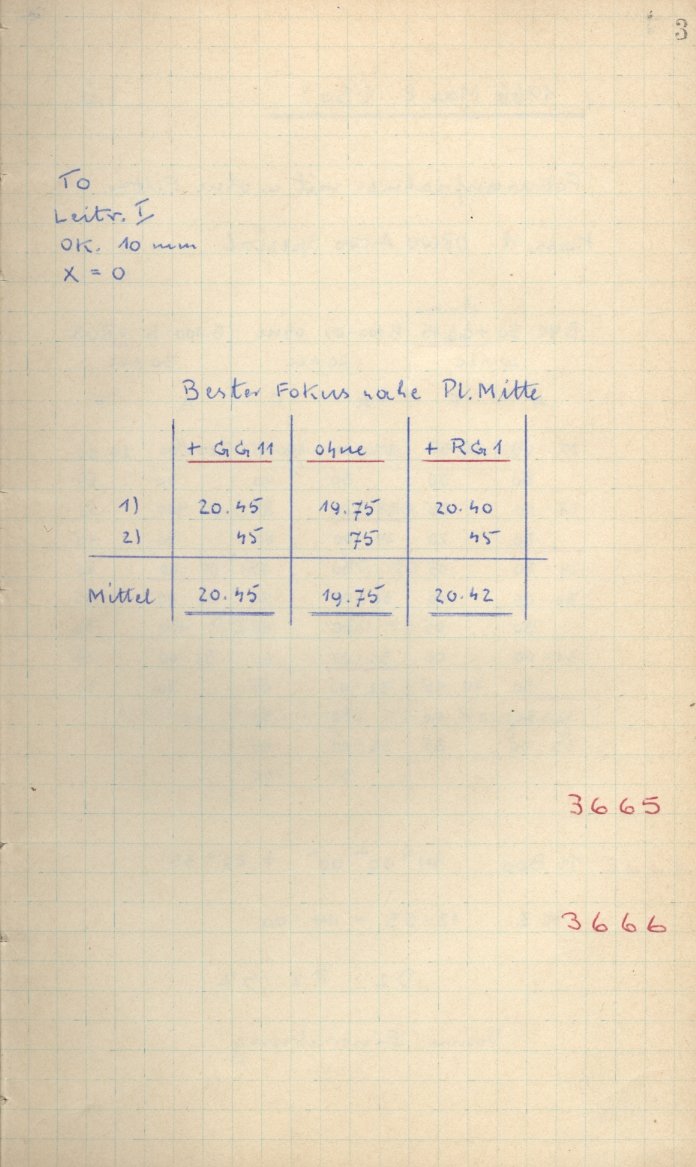 3
To
Leitr. I
OK. 10 mm
X = 0
Bester Fokus nahe Pl. Mitte
+ GG11 ohne + RG1
1) 20.45 19.75 20.40
2) 45 75 45
Mittel 20.45 19.75 20.42
3665
3666